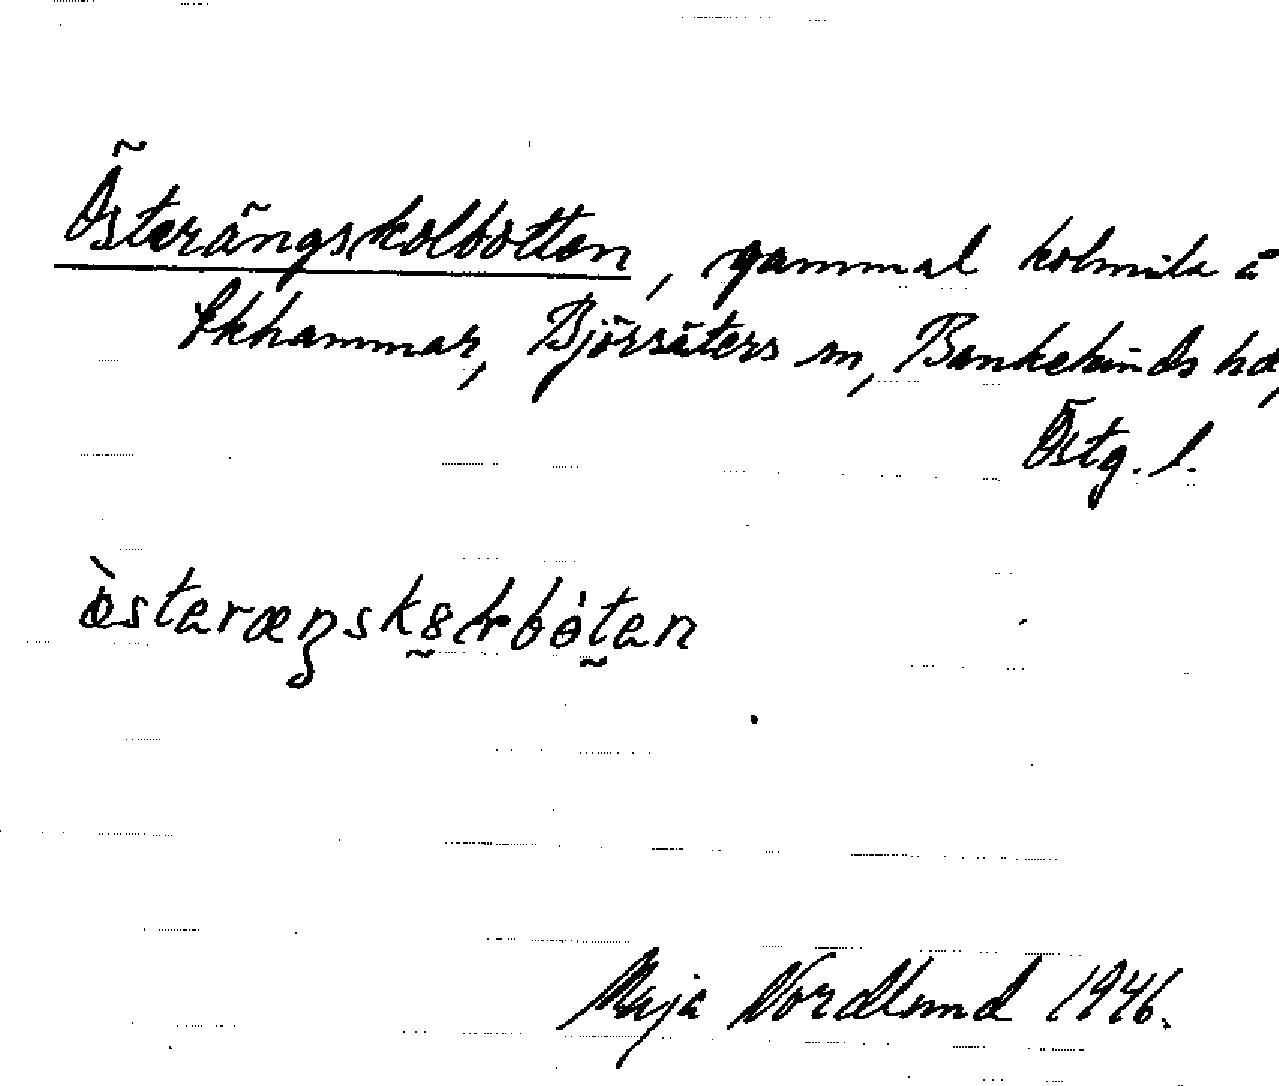 Österängskolbotten, gammal kolmila å
Ekhammar, Björsäters sn, Bankekinds hd,
Östg. l.
Maja Nordlund 1946.